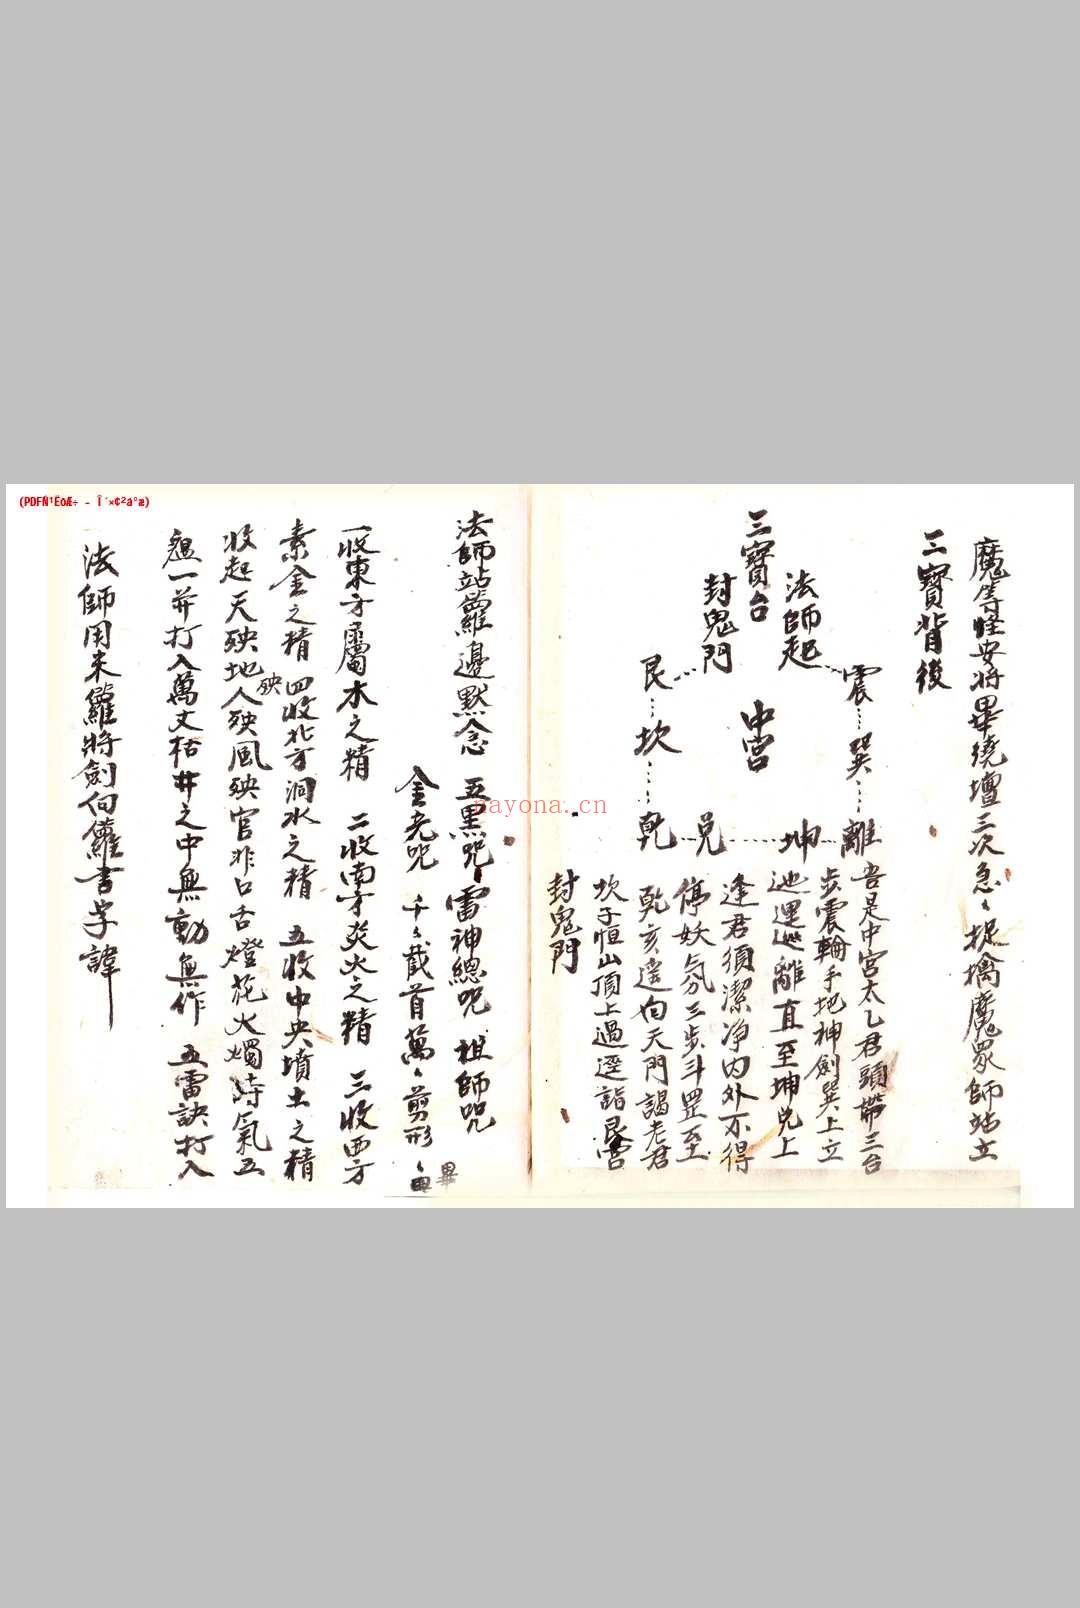 (PDFÑ¹ËõÆ÷ - Î´×¢²á°æ)
魔等怪安將畢繞壇三次急〻捉擒魔眾師站立
三寶背後
三寶台
法師起
封鬼門
震
巽
離
坤
兌
乾
坎
艮
中宮
吾是中宮太乙君頭帶三台
步震輪手把神劍巽上立
迆邐巡離直至坤兌上
逢君須潔净內外不得
停妖氛三步斗罡至
乾亥遙向天門謁老君
坎子恒山頂上過逕詣艮宮
封鬼門
法師站籮邊默念 五黑咒 雷神總咒 祖師咒
金光咒 千〻截首萬〻剪形 畢
一收東方屬木之精 二收南方炎火之精 三收西方
素金之精 四收北方洞水之精 五收中央墳土之精
收起天殃地殃人殃風殃官非口舌燈花火燭時氣五
瘟一并打入萬丈枯井之中無動無作 五雷訣打入
法師用米籮將劍向籮書字諱
nayona.cn